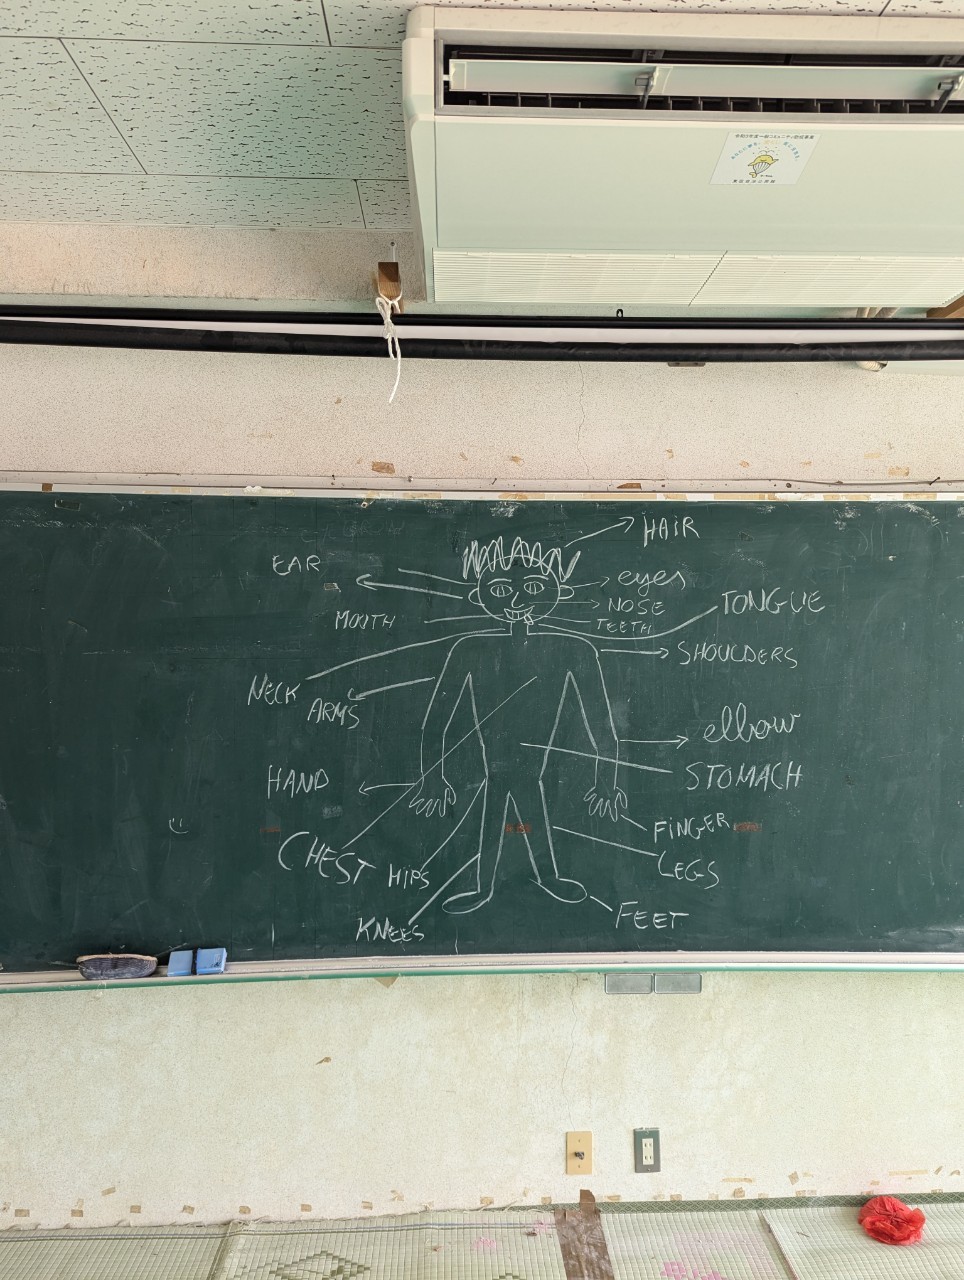 HAIR
EAR
eyes
NOSE
TONGUE
MOUTH
TEETH
SHOULDERS
NECK
ARMS
elbow
HAND
STOMACH
FINGER
CHEST
HIPS
LEGS
KNEES
FEET